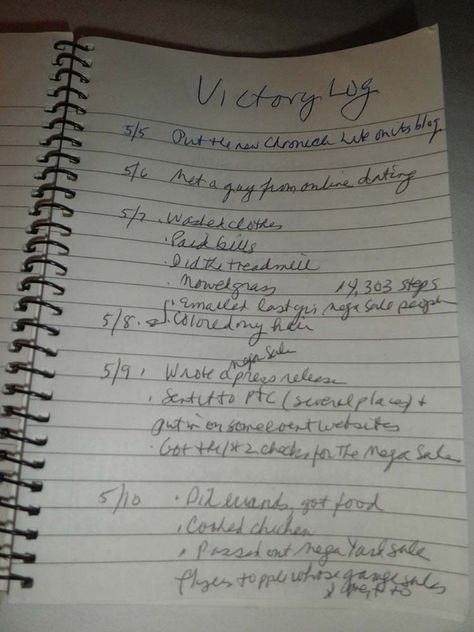 Victory Log
5/5 Put the new Chronicle link on its blog
5/6 Met a guy from online dating
5/7 . Washed clothes
. Paid bills
. Did the treadmill
. Mowed grass 14,303 steps
. Emailed last yr's mega sale people
5/8 . Colored my hair
mega sale
5/9 . Wrote a press release
. Sent it to PTC (several places) +
put it on some event websites
. Got the 1st 2 checks for The Mega Sale
5/10 . Did errands, got food
. Cooked chicken
. Passed out Mega Yard Sale
flyers to ppl whose garage sales
I went to